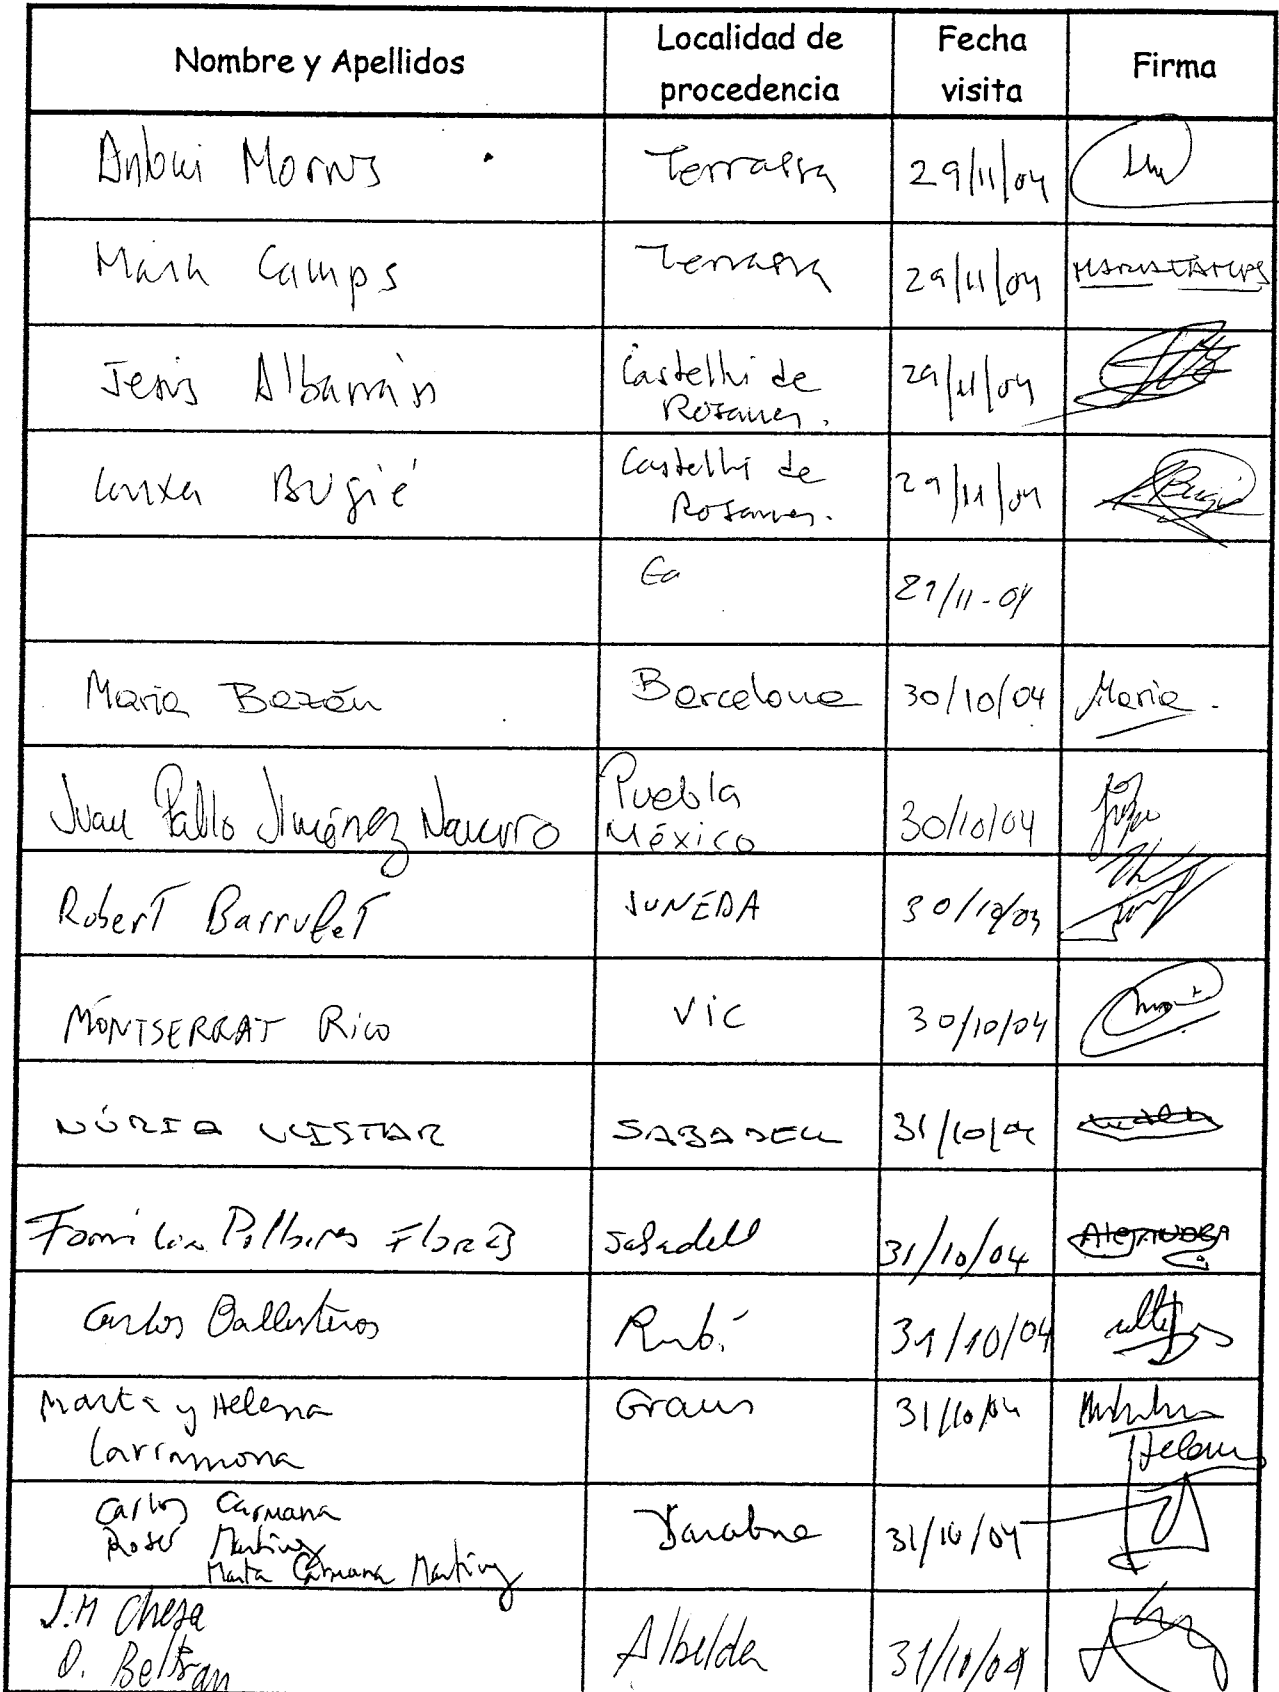 Nombre y Apellidos Localidad de procedencia Fecha visita Firma
Antoni Terrassa 29/11/04
Maria Camps Terrassa 29/11/04 MARIA CAMPS
Jesús Albarrán Castellví de Rosanes. 29/11/04
Bugié Castellví de Rosanes. 29/11/04 Bugié
Ea 29/11-04
Maria Bazán Barcelona 30/10/04 Maria.
Juan Pablo Jiménez Navarro Puebla México 30/10/04
Robert Barrufet JUNEDA 30/10/03
MONTSERRAT Rico Vic 30/10/04
NÚRIA SABADELL 31/10/04
Familia Flores Sabadell 31/10/04
Carlos Ballesteros Rubí 31/10/04
Marta y Helena Larramona Graus 31/10/04 Helena
Carlos Carmana
Roser Martínez
Marta Carmana Martínez 31/10/04
J.M Chesa
O. Beltran Albelda 31/10/04